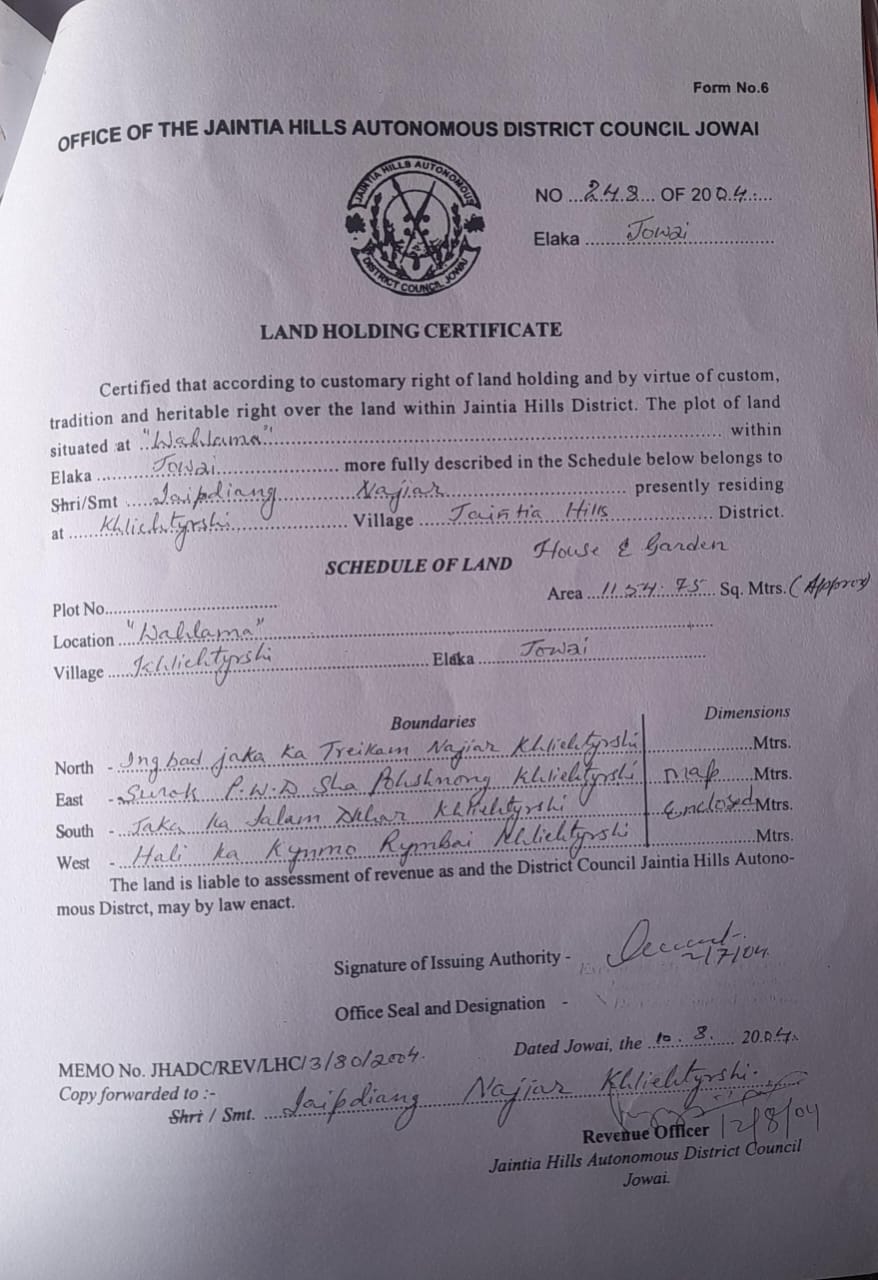 Form No.6
OFFICE OF THE JAINTIA HILLS AUTONOMOUS DISTRICT COUNCIL JOWAI
JAINTIA HILLS AUTONOMOUS
DISTRICT COUNCIL JOWAI
NO ...243... OF 2004....
Elaka ........Jowai................
LAND HOLDING CERTIFICATE
Certified that according to customary right of land holding and by virtue of custom,
tradition and heritable right over the land within Jaintia Hills District. The plot of land
situated at .."Wahlama"........................................ within
Elaka ..........Jowai.................... more fully described in the Schedule below belongs to
Shri/Smt ....Iaipdiang............Najiar.......................... presently residing
at ......Khliehtyrshi..................... Village ......Jaintia Hills.................. District.
House & Garden
SCHEDULE OF LAND
Area ...1154.75... Sq. Mtrs. (Approx)
Plot No..........................................
Location .."Wahlama"..................................................
Village .....Khliehtyrshi........................... Elaka ........Jowai....................
Boundaries
Dimensions
North - Ing bad jaka ka Treikam Najiar Khliehtyrshi ....................Mtrs.
East - Surok P.W.D Sha Pohshnong Khliehtyrshi map......Mtrs.
South - Jaka ka Salam Dkhar Khliehtyrshi Enclosed Mtrs.
West - Hali ka Kynmo Rymbai Khliehtyrshi ....................Mtrs.
The land is liable to assessment of revenue as and the District Council Jaintia Hills Autono-
mous Distrct, may by law enact.
Signature of Issuing Authority -
2/7/04
Office Seal and Designation -
Dated Jowai, the ..10. 8...... 2004.
MEMO No. JHADC/REV/LHC/3/80/2004.
Copy forwarded to :-
Shri / Smt. ....Iaipdiang Najiar Khliehtyrshi.
Revenue Officer 12/8/04
Jaintia Hills Autonomous District Council
Jowai.